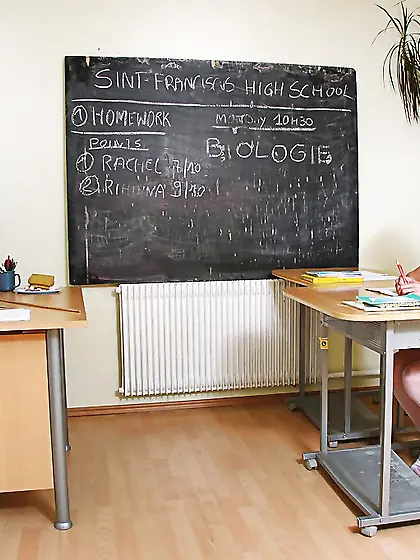 SINT-FRANCISCUS HIGH SCHOOL
① HOMEWORK
MONDAY 10H30
POINTS
BIOLOGIE
① RACHEL 7/10
② RIHANNA 9/10